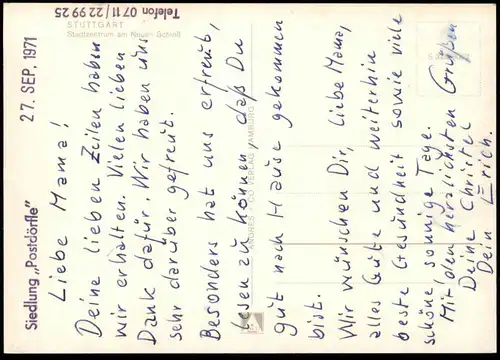 Siedlung „Postdörfle"
27. SEP. 1971
Telefon 07 11 / 22 99 25
STUTTGART
Stadtzentrum am Neuen Schloß
Liebe Mama!
Deine lieben Zeilen haben
wir erhalten. Vielen lieben
Dank dafür. Wir haben uns
sehr darüber gefreut.
Besonders hat uns erfreut,
lesen zu können, daß Du
gut nach Hause gekommen
bist.
Wir wünschen Dir, liebe Mama,
alles Gute und weiterhin
beste Gesundheit sowie viele
schöne sonnige Tage.
Mit den herzlichsten Grüßen
Deine Christel
Dein Erich.